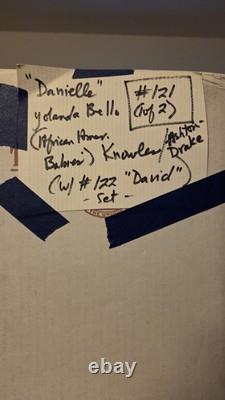 "Danielle"
#121
(1 of 2)
Yolanda Bello
(African Amer.
Babies) Knowles/Ashton-
Drake
(w/ #122 "David")
- set -
ebay